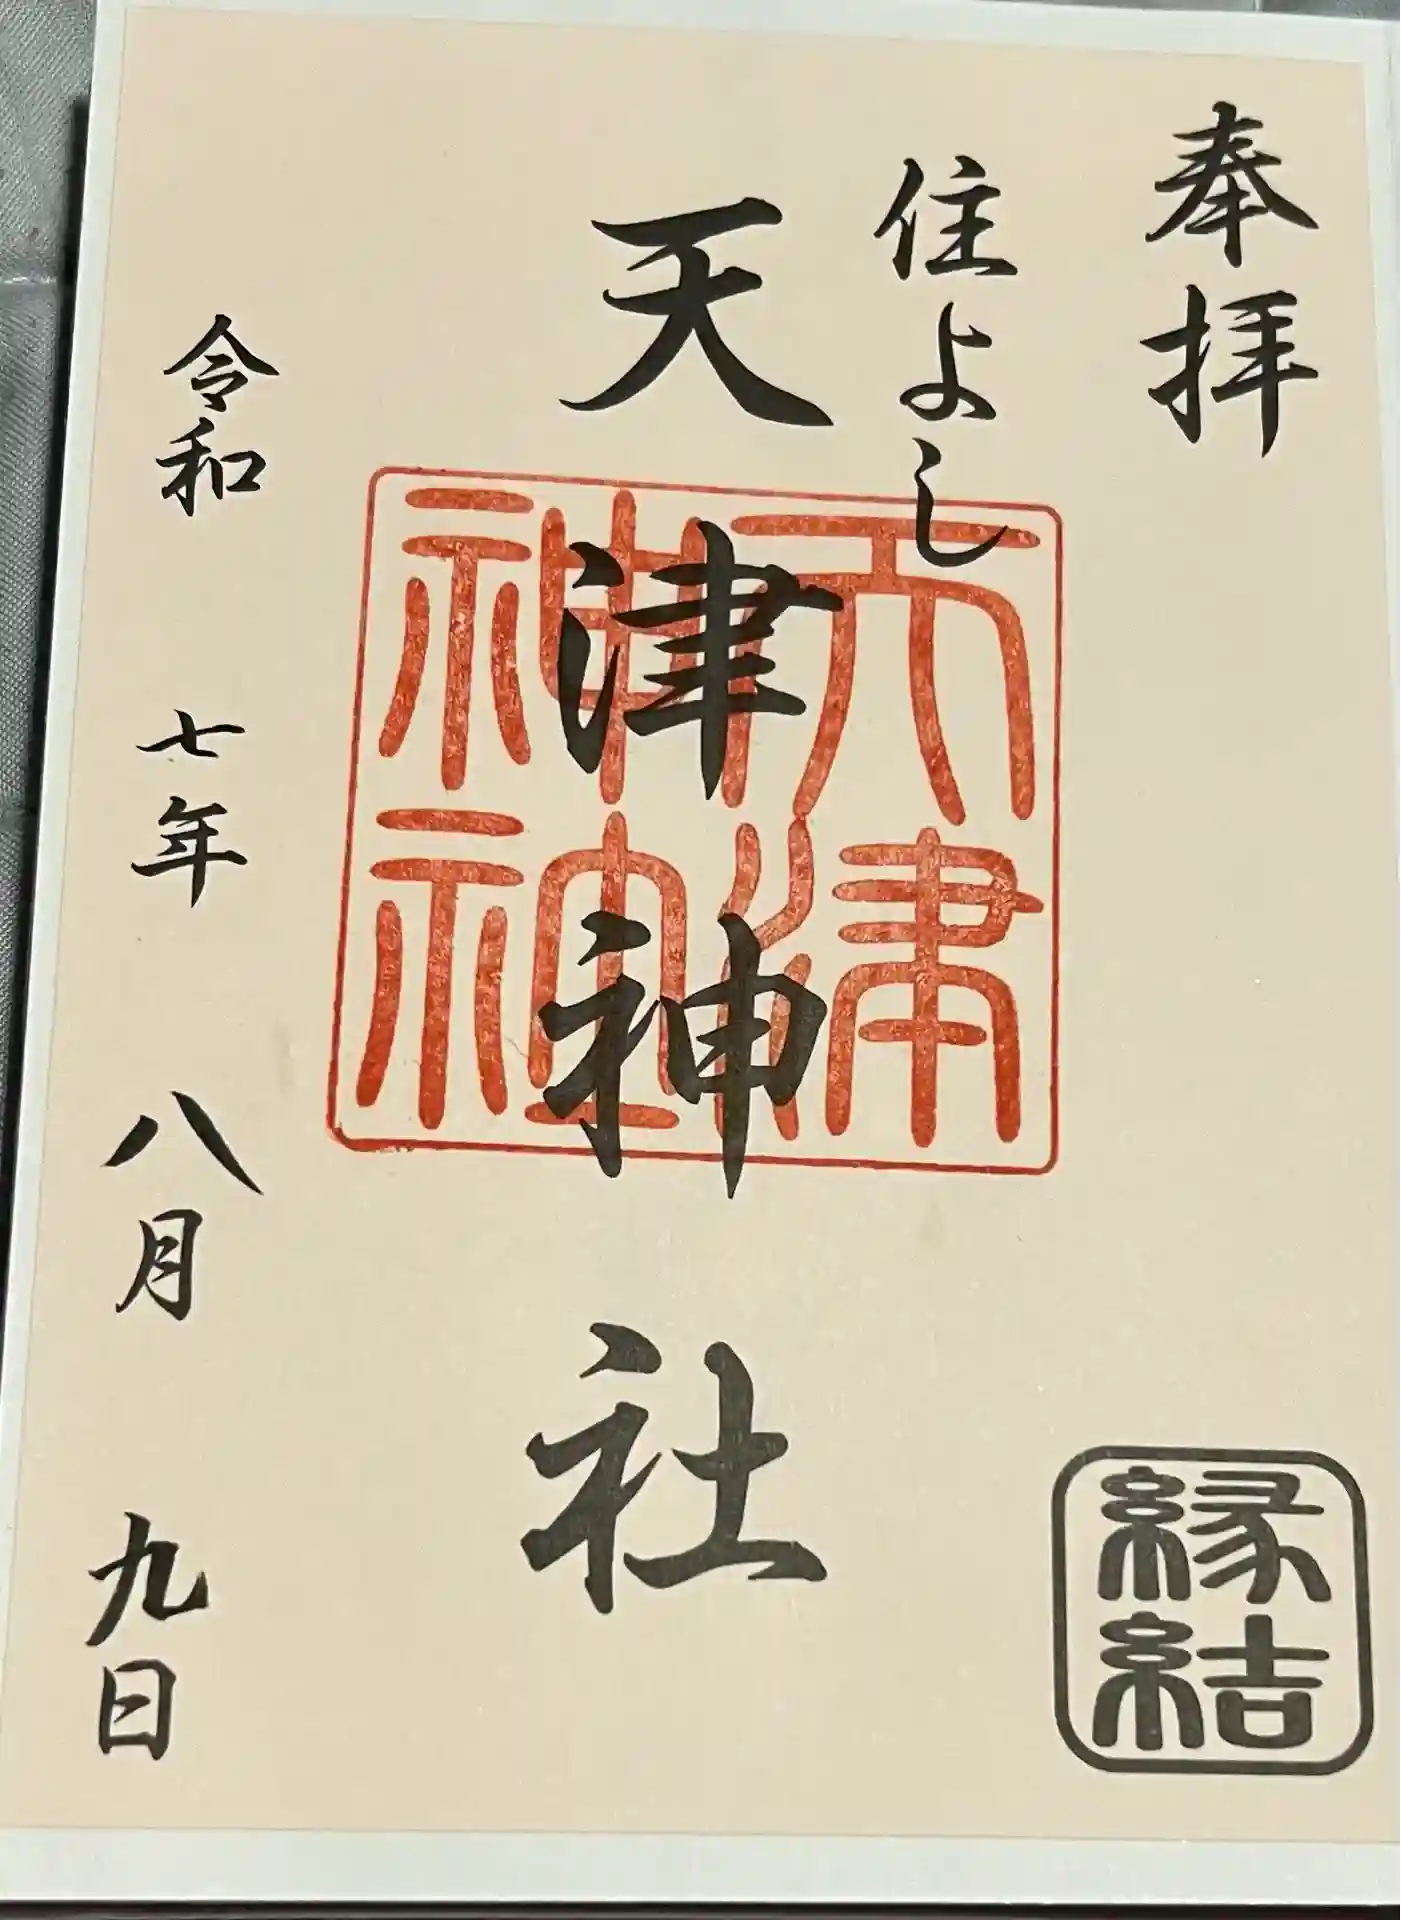 奉拝
住よし
天津神社
天津神社
縁結
令和 七年 八月 九日